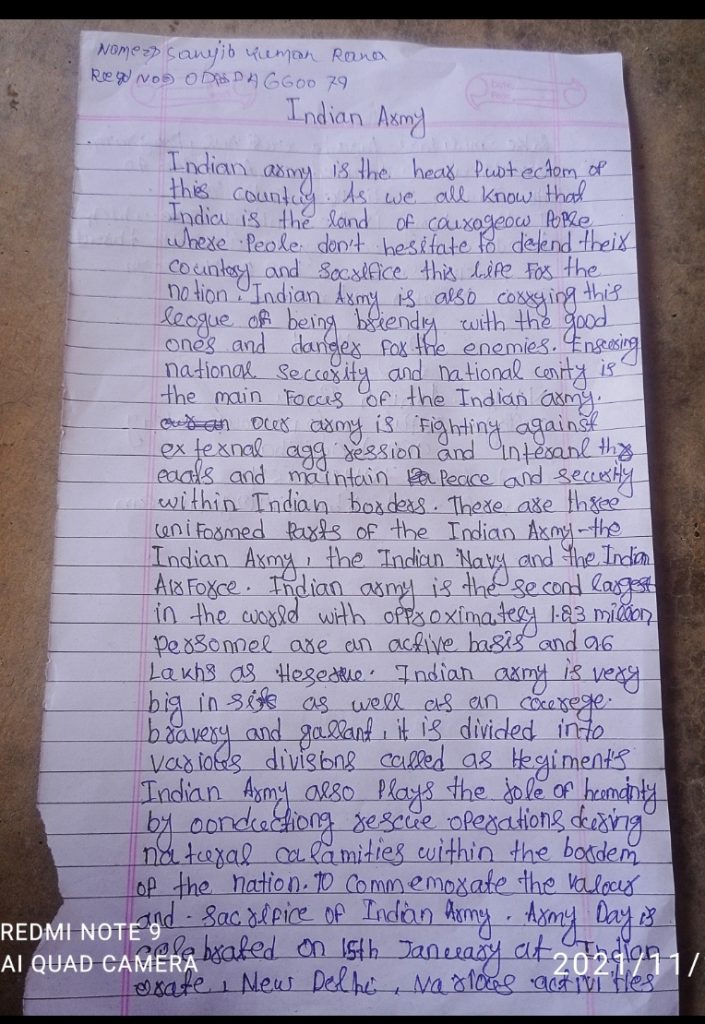 Name⇒ Sanjib Kumar Rana
Regd No⇒ OD18DA660079
Indian Army
Indian army is the hear Puotectom of
this country. As we all know that
India is the land of courogeow Pople
where Peole don't hesitate to defend their
country and Socrifice this life For the
notion. Indian Army is also corrying this
leogue of being briendly with the good
ones and danger For the enemies. Ensuring
national seccurity and national cenity is
the main Foccus of the Indian army.
our army is Fighting against
external agg ression and Interanl thr
eaats and maintain Peace and security
within Indian borders. There are three
uniformed Parts of the Indian Army-the
Indian Army, the Indian Navy and the Indian
AirForce. Indian army is the second largest
in the world with opproximately 1.23 million
personnel are an active basis and 9.6
Lakhs as Heserue. Indian army is very
big in as well as an courege.
bravery and gallant, it is divided into
various divisions called as Hegiments
Indian Army also Plays the role of humanity
by conductiong rescue operations during
natural calamities within the bordem
of the nation. To commemorate the valour
and. Sacrifice of Indian Army. Army Day is
celebrated on 15th January at Indian
Grate, New Delhi, various activities
REDMI NOTE 9
AI QUAD CAMERA
2021/11/